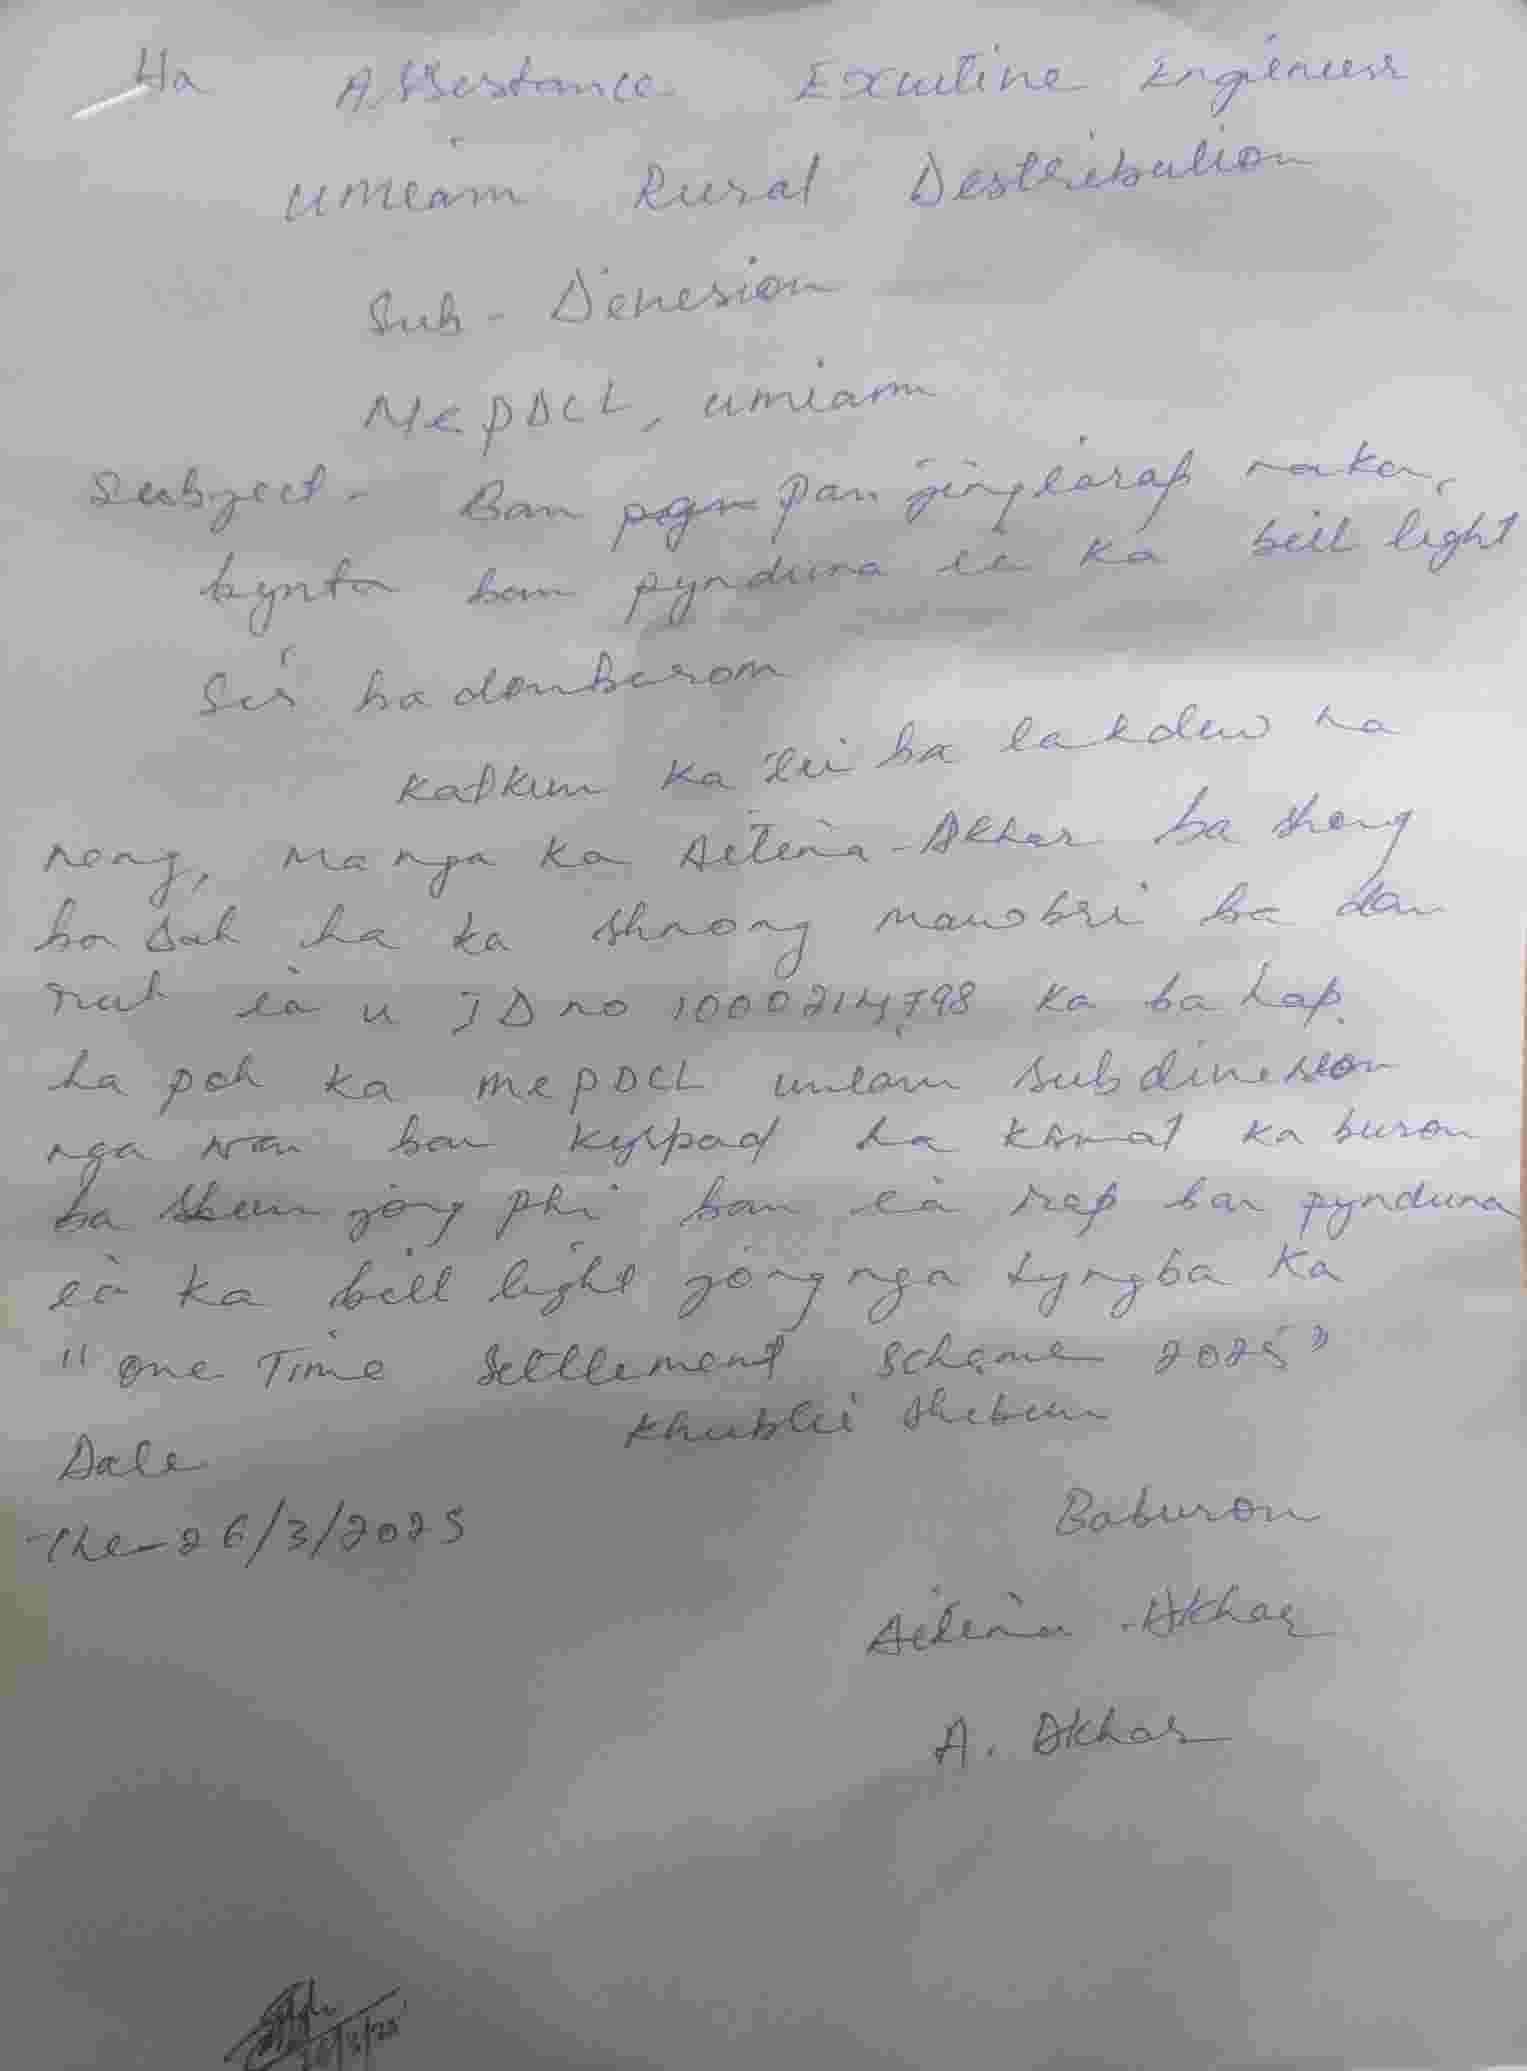 Ha Assestance Excutine Engineer
Umeam Rural Destribution
Sub - Denesion
MePDCL, umiam
Subject - Ban pan jingïarap naka,
bynta ban pynduna ïa ka bill light
Sir ba donburom
Katkum ka ïei ba lahdew na
neng, ma nga ka Aitina - Akhar ba shong
ba sah ha ka shnong mawbri ba don
ruh ïa u ID no 1000214798 ka ba hap
ha poh ka mePDCL umiam subdinesion
nga wan ban kyrpad ha khmat ka burom
ba kham jong phi ban ïa rap ban pynduna
ïa ka bill light jong nga lyngba ka
"One Time Settlement Scheme 2025"
Khublei shibun
Date
The - 26/3/2025
Baburom
Aitina - Akhar
A. Akhar
26/3/25